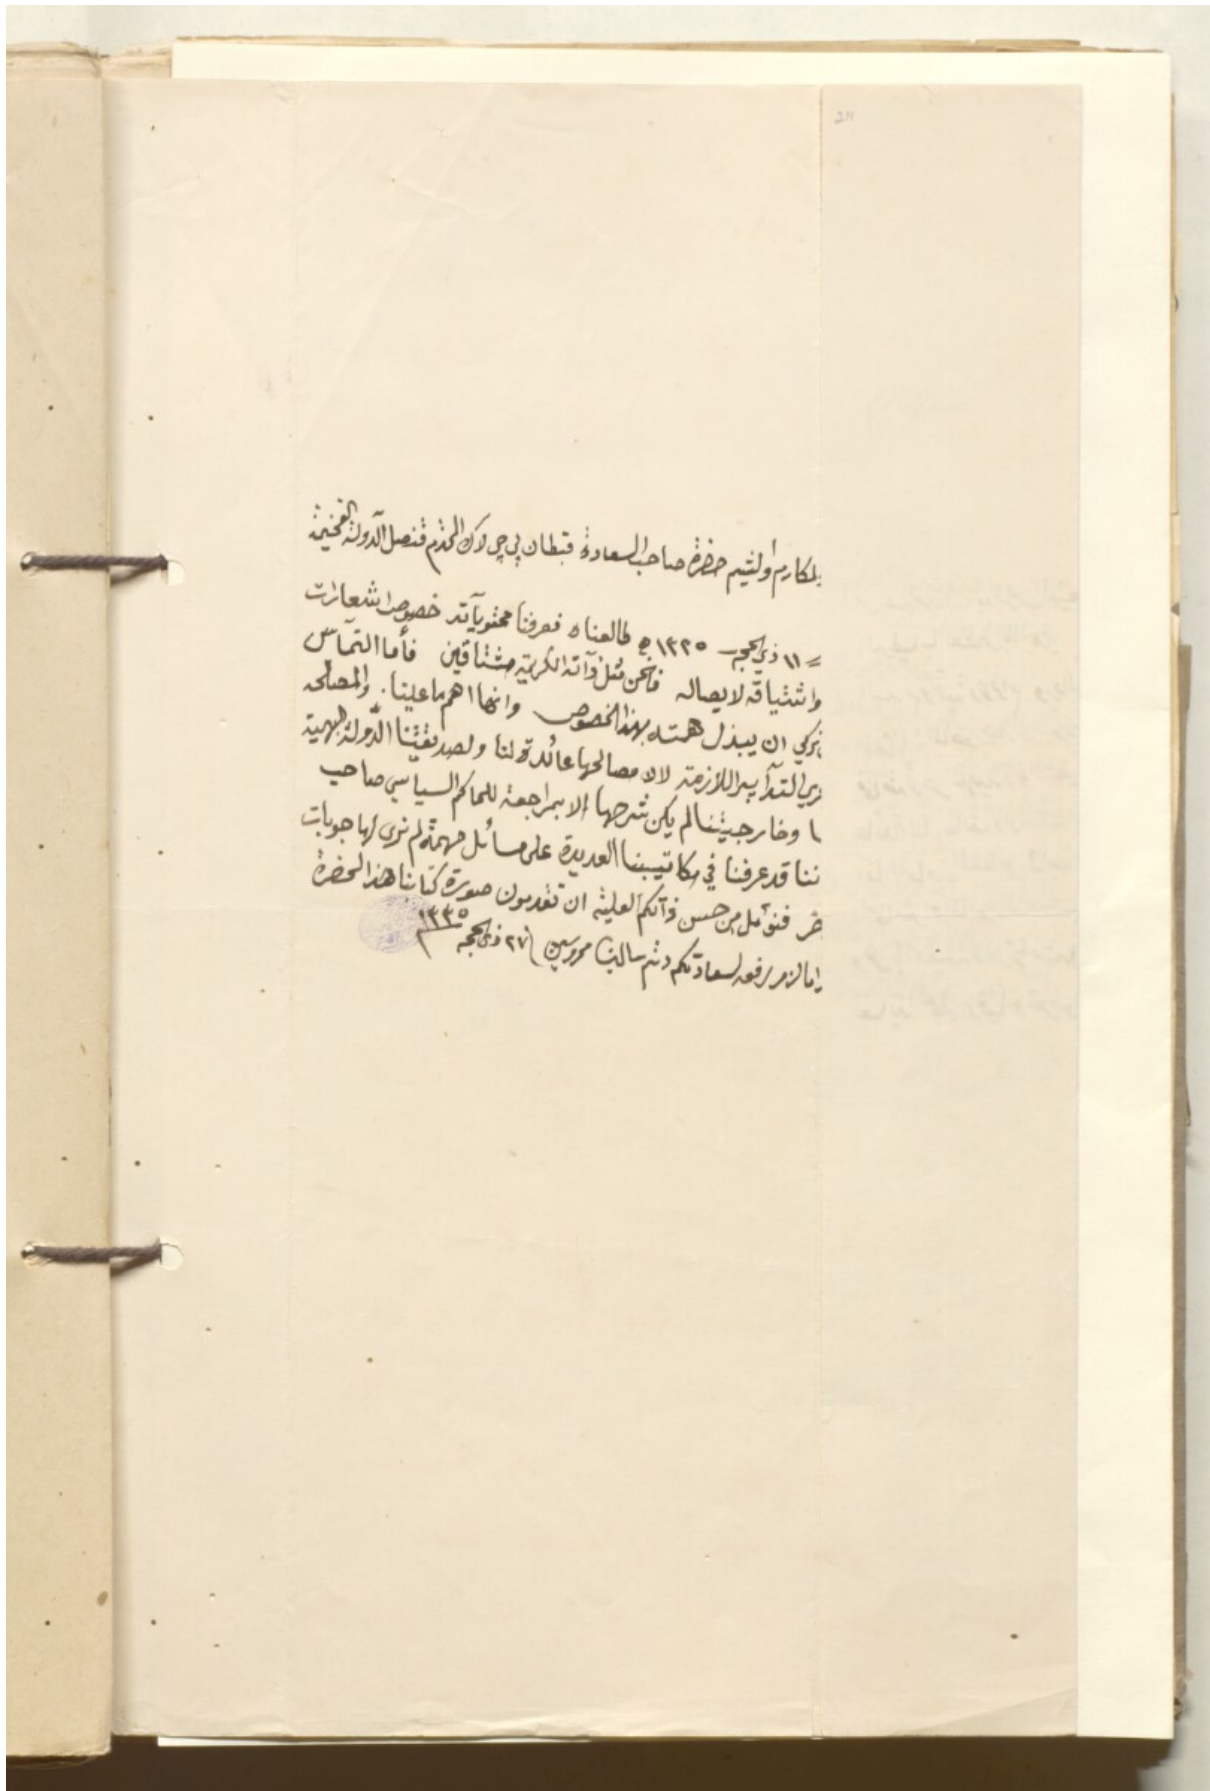 211
المكارم والشيم حضرة صاحب السعادة قبطان پي جي لاك المحترم قنصل الدولة الفخيمة
١١ ذي الحجه ١٣٣٥ طالعناه فعرفنا محتوياته خصوصا شعارات
واشتياقه لايصاله فنحن مثل ذاته الكريمة مشتاقين فأما التماس
تركي ان يبذل همته بهذا الخصوص وانها اهم ما علينا. والمصلحه
التدابير اللازمة لان مصالحها عائدة لنا ولصديقتنا الدولة البهية
وخارجيتنا لم يكن شرحها الا بمراجعة للحاكم السياسي صاحب
قد عرفنا في مكاتيبنا العديدة على مسائل مهمة لم نرى لها جوبات
فنؤمل من حسن ذاتكم العلية ان تقدمون صورة كتابنا هذا لحضرة
ما لزم رفعه لسعادتكم دمتم سالمين محروسين ٢٧ ذي الحجه ١٣٣٥